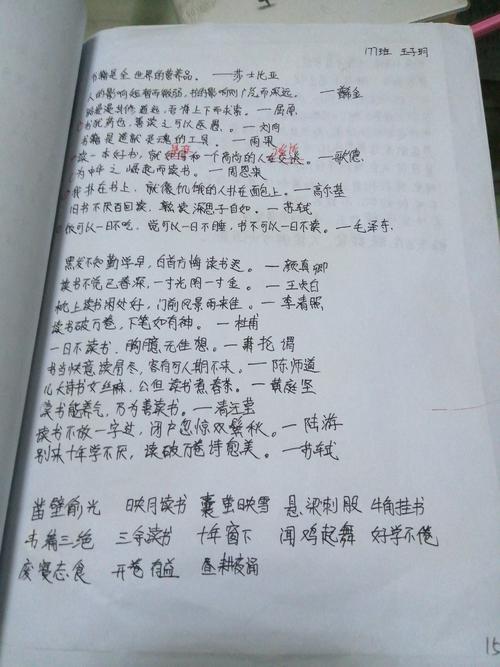 177班 王子玥
书籍是全世界的营养品。——莎士比亚
人的影响短暂而微弱，书的影响则广泛而深远。——普希金
路曼曼其修道远，吾将上下而求索。——屈原
书犹药也，善读之可以医愚。——刘向
书籍是造就灵魂的工具。——雨果
读一本好书，就和一个高尚的人在交谈。——歌德
为中华之崛起而读书。——周恩来
我扑在书上，就像饥饿的人扑在面包上。——高尔基
旧书不厌百回读，熟读深思子自知。——苏轼
饭可以一日不吃，觉可以一日不睡，书不可以一日不读。——毛泽东
黑发不知勤学早，白首方悔读书迟。——颜真卿
读书不觉已春深，一寸光阴一寸金。——王贞白
枕上读书闲处好，门前风景雨来佳。——李清照
读书破万卷，下笔如有神。——杜甫
一日不读书，胸臆无佳想。——萧抡谓
书当快意读易尽，客有可人期不来。——陈师道
读书煮春茶。——黄庭坚
读书能养气，万为善读书。
读书不放一字过，闭户忽惊双鬓秋。——陆游
别来十年学不厌，读破万卷诗愈美。——苏轼
凿壁偷光 映月读书 囊萤映雪 悬梁刺股 牛角挂书
韦编三绝 三余读书 十年窗下 闻鸡起舞 好学不倦
废寝忘食 开卷有益 昼耕夜诵
15